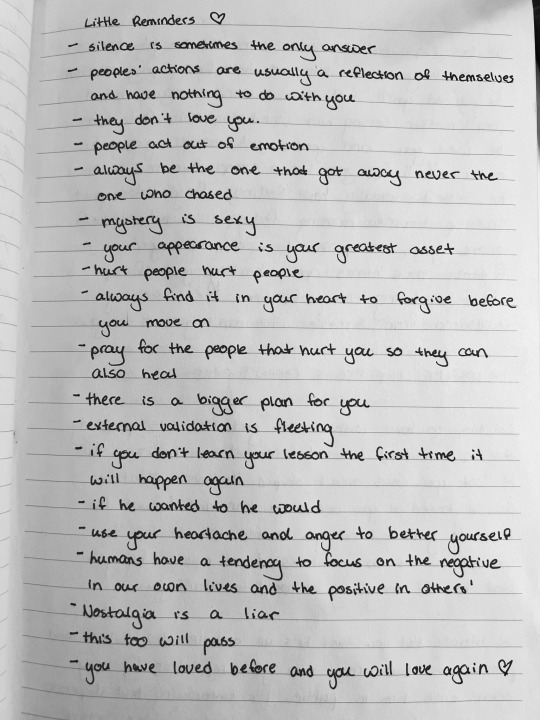 Little Reminders ♡
- silence is sometimes the only answer
- peoples' actions are usually a reflection of themselves
and have nothing to do with you
- they don't love you.
- people act out of emotion
- always be the one that got away never the
one who chased
- mystery is sexy
- your appearance is your greatest asset
- hurt people hurt people
- always find it in your heart to forgive before
you move on
- pray for the people that hurt you so they can
also heal
- there is a bigger plan for you
- external validation is fleeting
- if you don't learn your lesson the first time it
will happen again
- if he wanted to he would
- use your heartache and anger to better yourself
- humans have a tendency to focus on the negative
in our own lives and the positive in others'
- Nostalgia is a liar
- this too will pass
- you have loved before and you will love again ♡